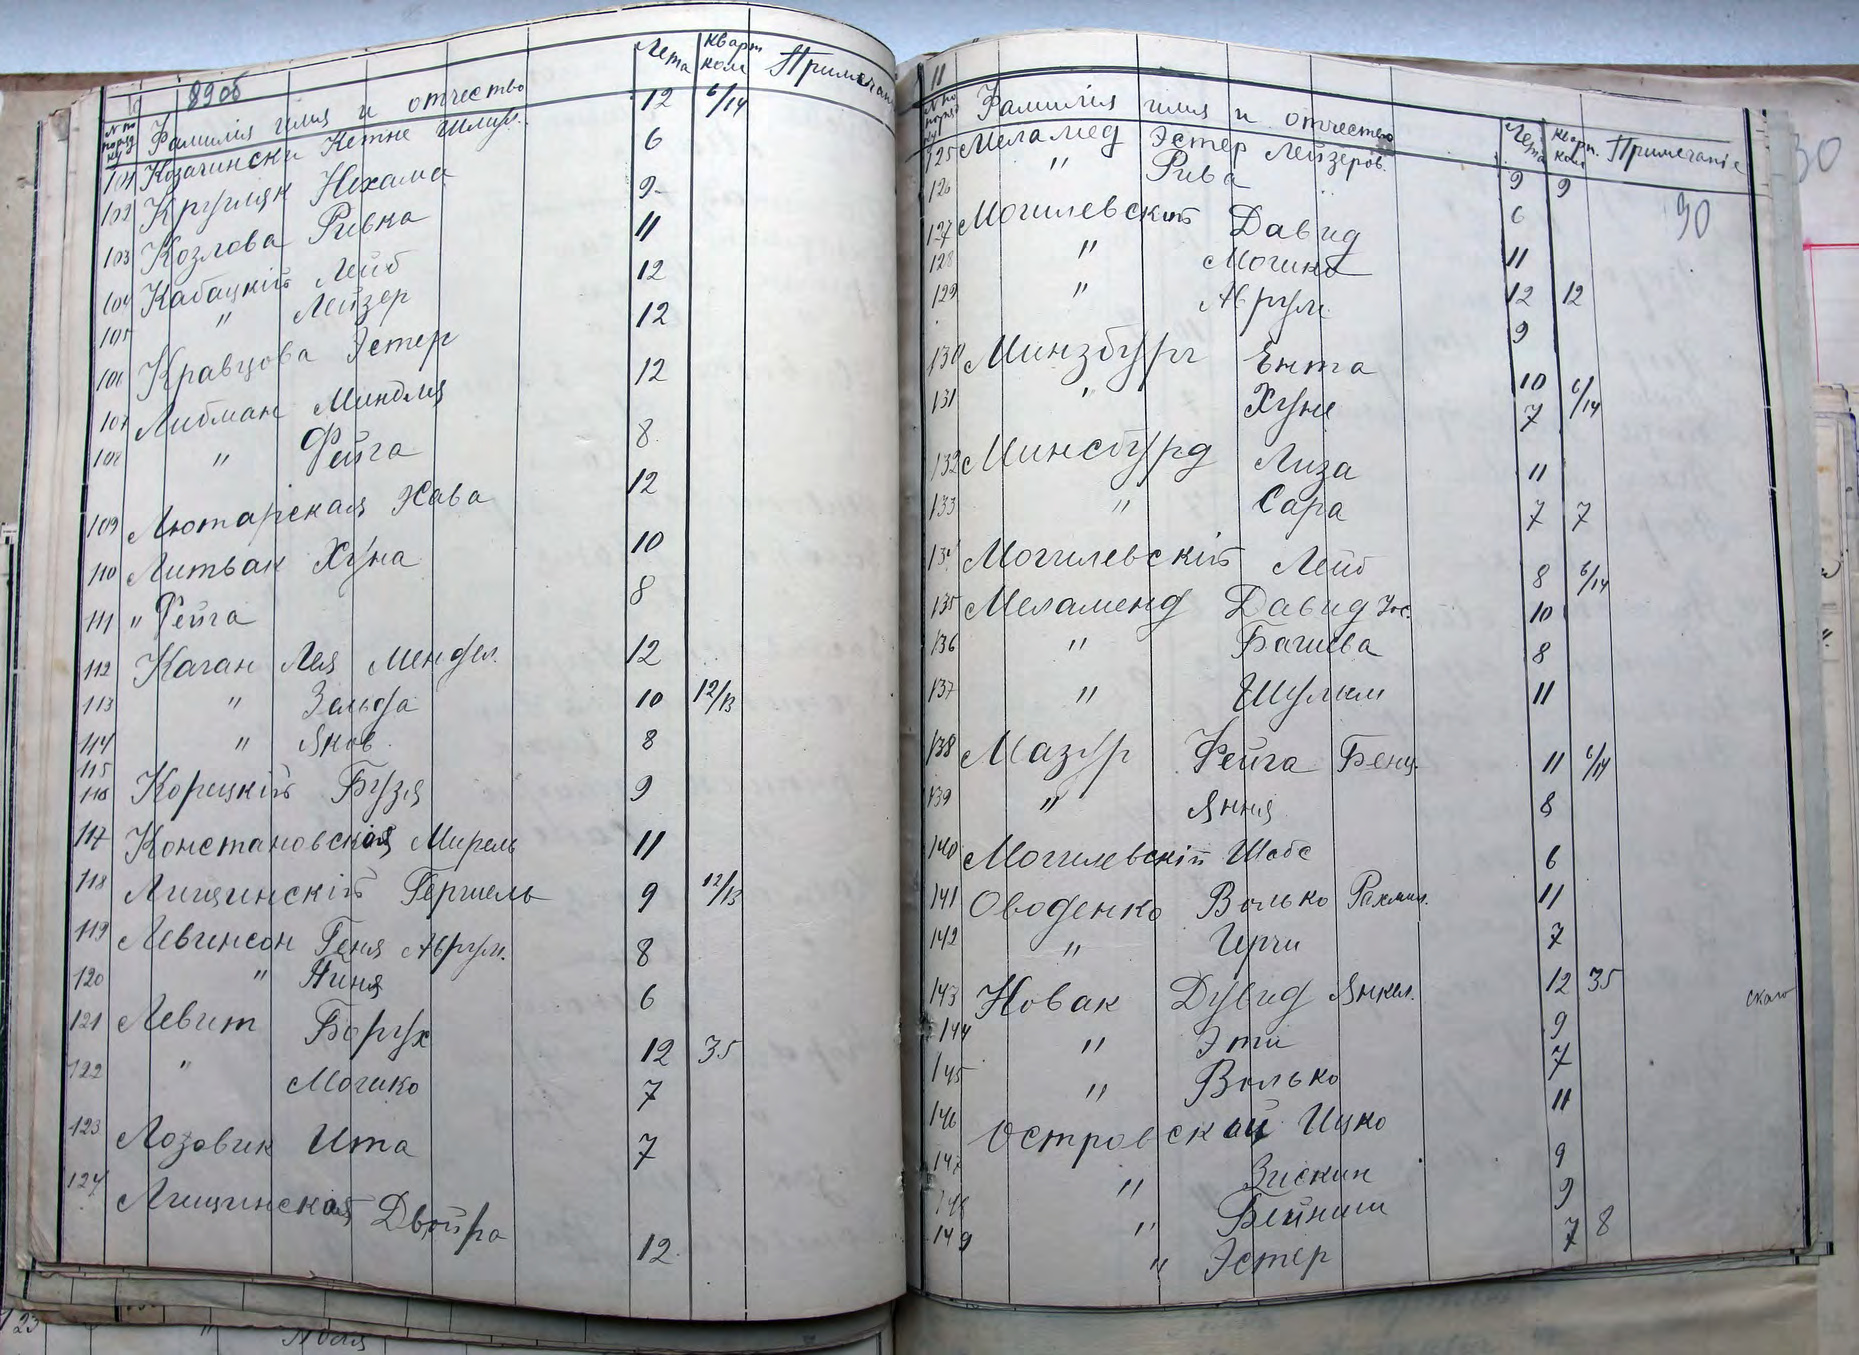 89 об
№ по поряд ку Фамилія имя и отчество Лета Кварт ком Примечан
101 Козачински Кетне Шмул. 12 6/14
102 Кругляк Нехама 6
103 Козлова Ривка 9
104 Кабацкій Лейб 11
105 " Лейзер 12
106 Кравцова Эстер 12
107 Либман Миндля 12
108 " Фейга 8
109 Лютарская Хава 12
110 Литвак Хуна 10
111 " Фейга 8
112 Каган Лея Мендел. 12
113 " Зельда 10 12/13
114 " Яков 8
115
116 Корицкій Бузя 9
117 Константовская Мирель 11
118 Лищинскій Гершель 9 12/13
119 Левинсон Геня Аврум. 8
120 " Ниня 6
121 Левит Борух 12 35
122 " Мошко 7
123 Лозовик Ита 7
124 Лищинская Двойра 12
11
№ по поряд ку Фамилія имя и отчество Лета Кварт. ком Примечаніе
90
125 Меламед Эстер Лейзеров. 9 9
126 " Рива 6
127 Могилевскій Давид 11
128 " Мошко 12 12
129 " Аврум 9
130 Минзбург Ента 10 6/14
131 " Хуне 7
132 Минсбург Лиза 11
133 " Сара 7 7
134 Могилевскій Лейб 8 6/14
135 Меламенд Давид Iос. 10
136 " Башева 8
137 " Шулим 11
138 Мазур Фейга Бенц. 11 6/14
139 " Яння 8
140 Могилевскій Шабс 6
141 Оводенко Волько Рахмил. 11
142 " Герш 7
143 Новак Дувид Янкел. 12 35
144 " Эти 9
145 " Волько 7
146 Островской Ицко 11
147 " Зискин 9
148 " Бейниш 9
149 " Эстер 7 8
ского